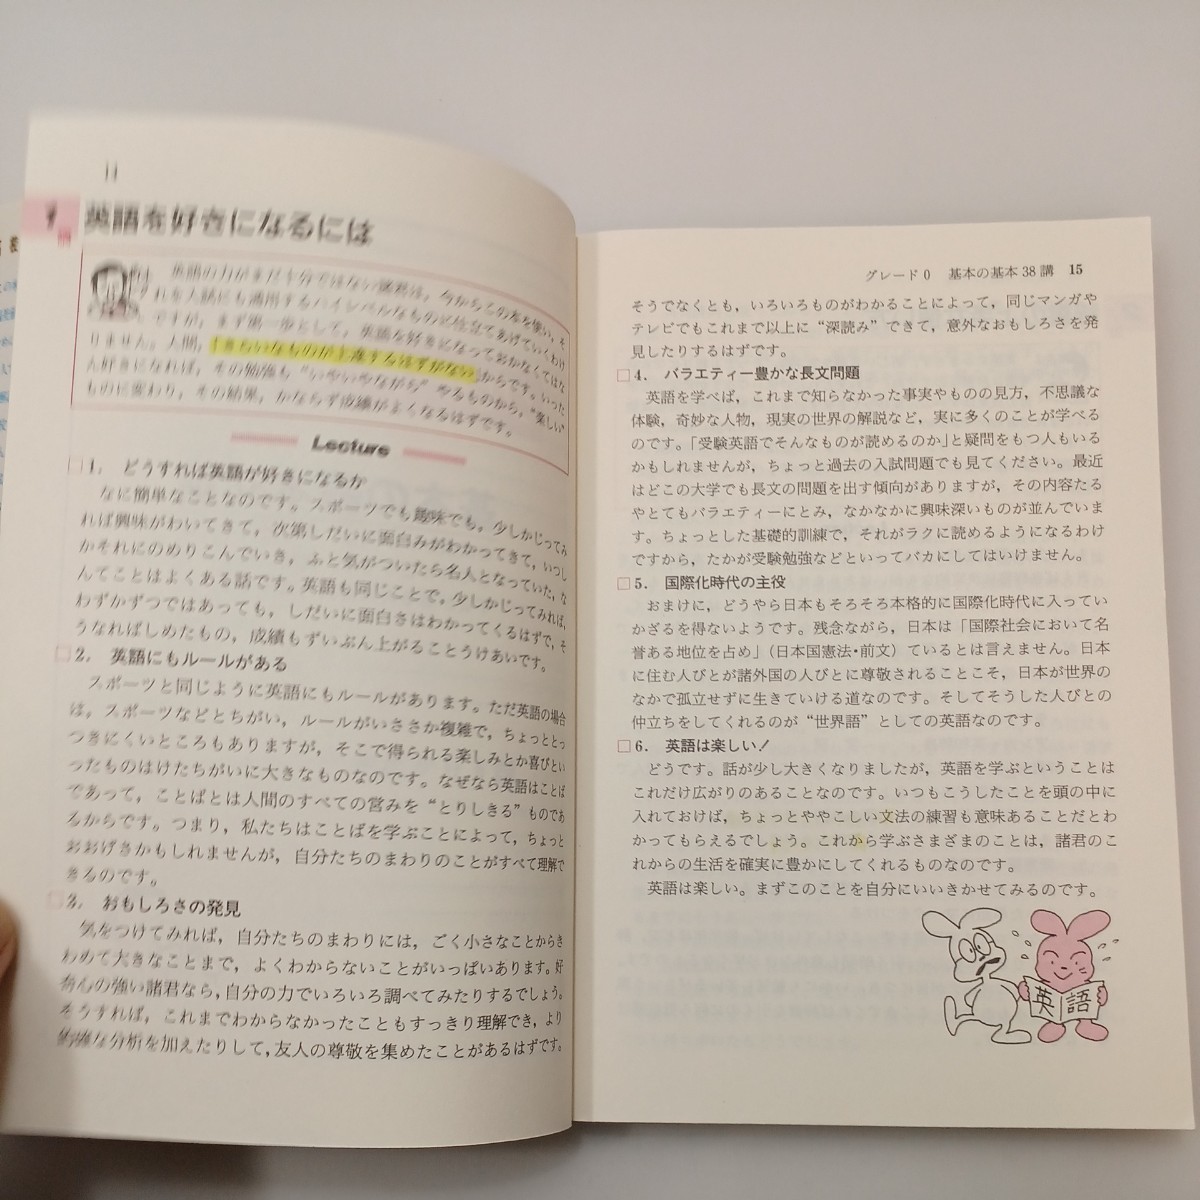 14
1
英語を好きになるには
英語の力がまだ十分ではない諸君は，今からこの本を使い，そ
れを入試にも通用するハイレベルなものに仕立てあげていくわけ
ですが，まず第一歩として，英語を好きになっておかなくてはな
りません。人間，「きらいなものが上達するはずがない」からです。いった
ん好きになれば，その勉強も“いやいやながら”やるものから，“楽しい”
ものに変わり，その結果，かならず成績がよくなるはずです。
Lecture
□1. どうすれば英語が好きになるか
なに簡単なことなのです。スポーツでも趣味でも，少しかじってみ
れば興味がわいてきて，次第しだいに面白みがわかってきて，いつし
かそれにのめりこんでいき，ふと気がついたら名人となっていた，な
んてことはよくある話です。英語も同じことで，少しかじってみれば，
わずかずつではあっても，しだいに面白さはわかってくるはずで，そ
うなればしめたもの，成績もずいぶん上がることうけあいです。
□2. 英語にもルールがある
スポーツと同じように英語にもルールがあります。ただ英語の場合
は，スポーツなどとちがい，ルールがいささか複雑で，ちょっととっ
つきにくいところもありますが，そこで得られる楽しみとか喜びとい
ったものはけたちがいに大きなものなのです。なぜなら英語はことば
であって，ことばとは人間のすべての営みを“とりしきる”ものであ
るからです。つまり，私たちはことばを学ぶことによって，ちょっと
おおげさかもしれませんが，自分たちのまわりのことがすべて理解で
きるのです。
□3. おもしろさの発見
気をつけてみれば，自分たちのまわりには，ごく小さなことからき
わめて大きなことまで，よくわからないことがいっぱいあります。好
奇心の強い諸君なら，自分の力でいろいろ調べてみたりするでしょう。
そうすれば，これまでわからなかったこともすっきり理解でき，より
な分析を加えたりして，友人の尊敬を集めたことがあるはずです。
グレード0 基本の基本38講 15
そうでなくとも，いろいろものがわかることによって，同じマンガや
テレビでもこれまで以上に“深読み”できて，意外なおもしろさを発
見したりするはずです。
□4. バラエティー豊かな長文問題
英語を学べば，これまで知らなかった事実やものの見方，不思議な
体験，奇妙な人物，現実の世界の解説など，実に多くのことが学べる
のです。「受験英語でそんなものが読めるのか」と疑問をもつ人もいる
かもしれませんが，ちょっと過去の入試問題でも見てください。最近
はどこの大学でも長文の問題を出す傾向がありますが，その内容たる
やとてもバラエティーにとみ，なかなかに興味深いものが並んでいま
す。ちょっとした基礎的訓練で，それがラクに読めるようになるわけ
ですから，たかが受験勉強などといってバカにしてはいけません。
□5. 国際化時代の主役
おまけに，どうやら日本もそろそろ本格的に国際化時代に入ってい
かざるを得ないようです。残念ながら，日本は「国際社会において名
誉ある地位を占め」（日本国憲法・前文）ているとは言えません。日本
に住む人びとが諸外国の人びとに尊敬されることこそ，日本が世界の
なかで孤立せずに生きていける道なのです。そしてそうした人びとの
仲立ちをしてくれるのが“世界語”としての英語なのです。
□6. 英語は楽しい！
どうです。話が少し大きくなりましたが，英語を学ぶということは
これだけ広がりのあることなのです。いつもこうしたことを頭の中に
入れておけば，ちょっとややこしい文法の練習も意味あることだとわ
かってもらえるでしょう。これから学ぶさまざまのことは，諸君のこ
れからの生活を確実に豊かにしてくれるものなのです。
英語は楽しい。まずこのことを自分にいいきかせてみるのです。
英語